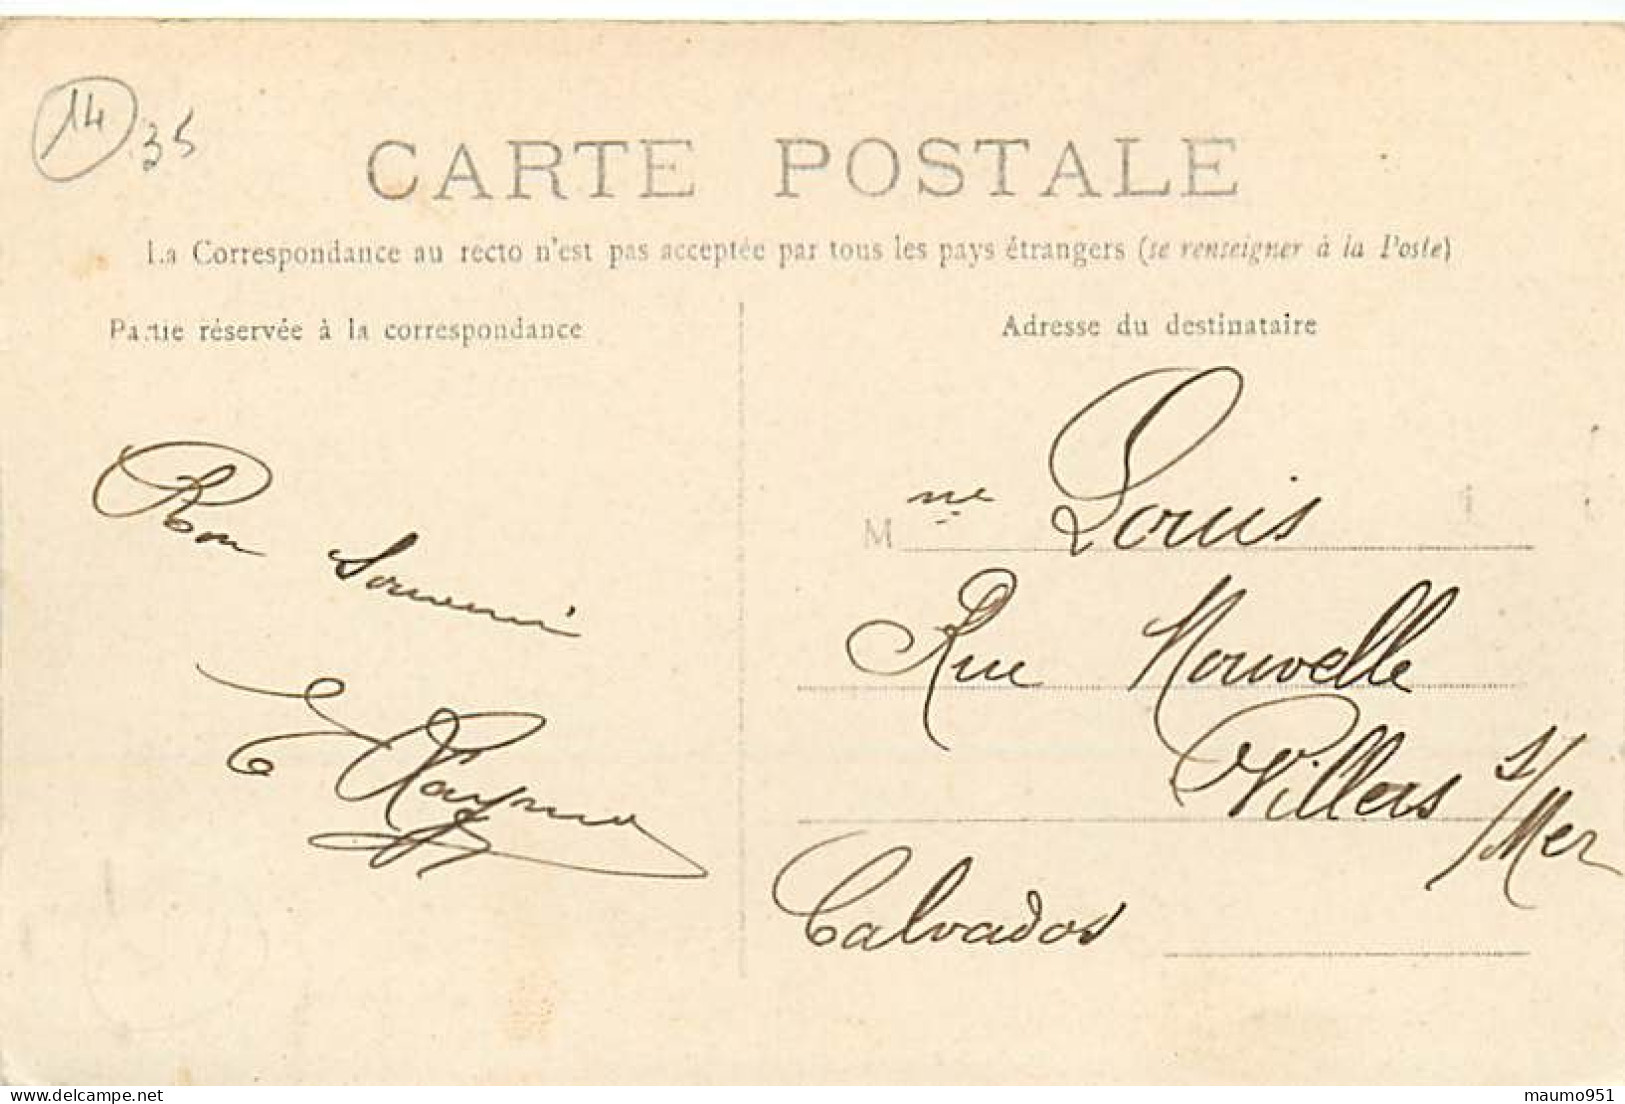 14
35
CARTE POSTALE
La Correspondance au recto n'est pas acceptée par tous les pays étrangers (se renseigner à la Poste)
Partie réservée à la correspondance
Adresse du destinataire
Bon Souvenir
E
Mme Louis
Rue Nouvelle
Villers s/Mer
Calvados
delcampe.net
maumo951